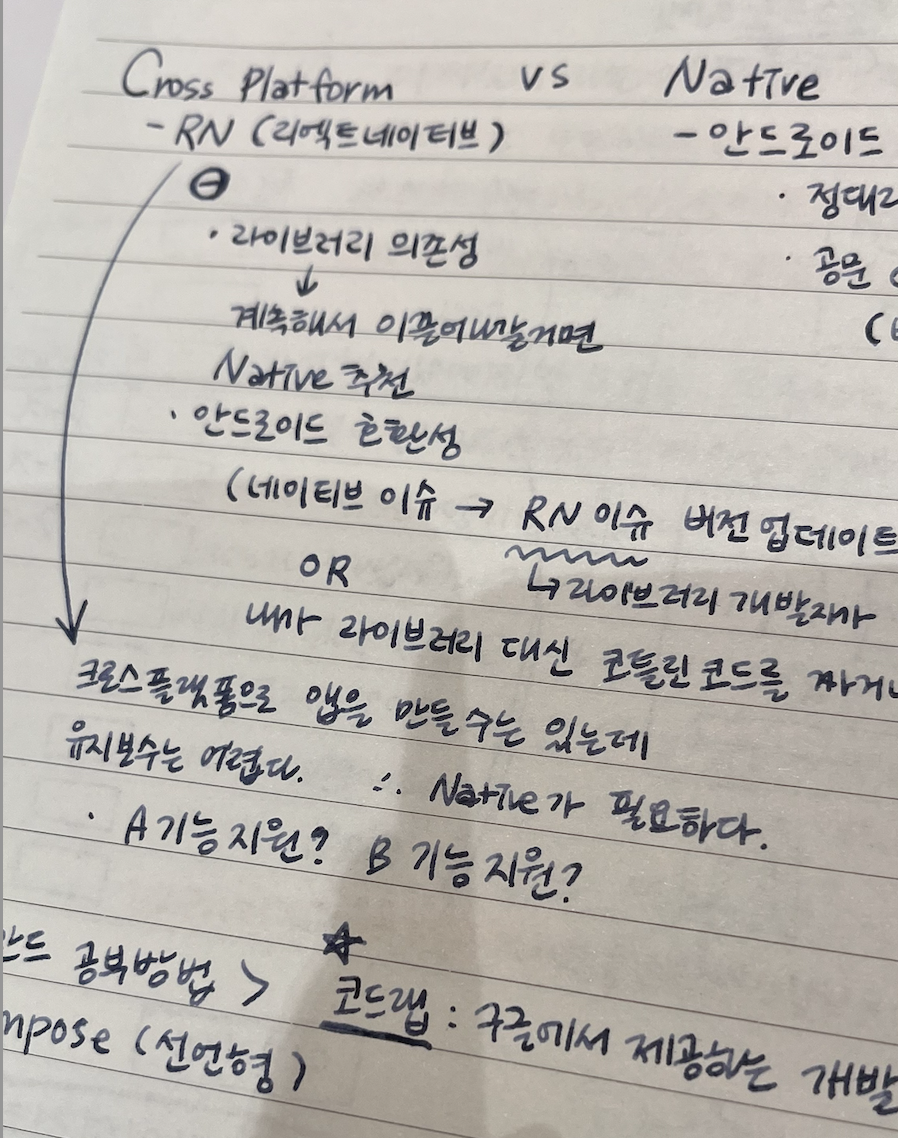 Cross Platform vs Native
- RN (리엑트네이티브) - 안드로이드
⊖
· 라이브러리 의존성 · 정대리
↓ · 공문
계속해서 이끌어나갈거면 (
Native 추천
· 안드로이드 호환성
(네이티브 이슈 → RN 이슈 버전 업데이트
OR ↳ 라이브러리 개발자가
내가 라이브러리 대신 코틀린 코드를 짜거나
크로스플랫폼으로 앱을 만들 수는 있는데
유지보수는 어렵다. ∴ Native가 필요하다.
· A 기능 지원? B 기능 지원?
☆
안드 공부방법 > 코드랩 : 구글에서 제공하는 개발
mpose (선언형)